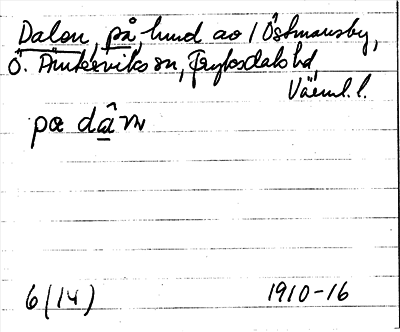 Dalen, på, hmd ao i Östmansby,
Ö. Ämterviks sn, Fryksdals hd
Värml. l.
pɑ dα̂n
6 (14) 1910-16